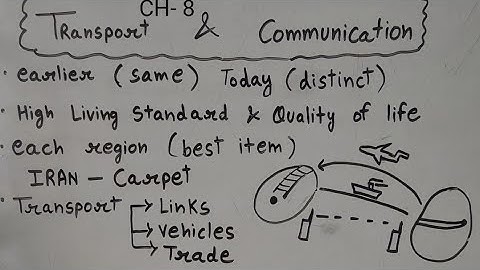 CH- 8
Transport & Communication
• earlier (same) Today (distinct)
• High Living Standard & Quality of life
• each region (best item)
IRAN – Carpet
• Transport → Links
→ vehicles
→ Trade